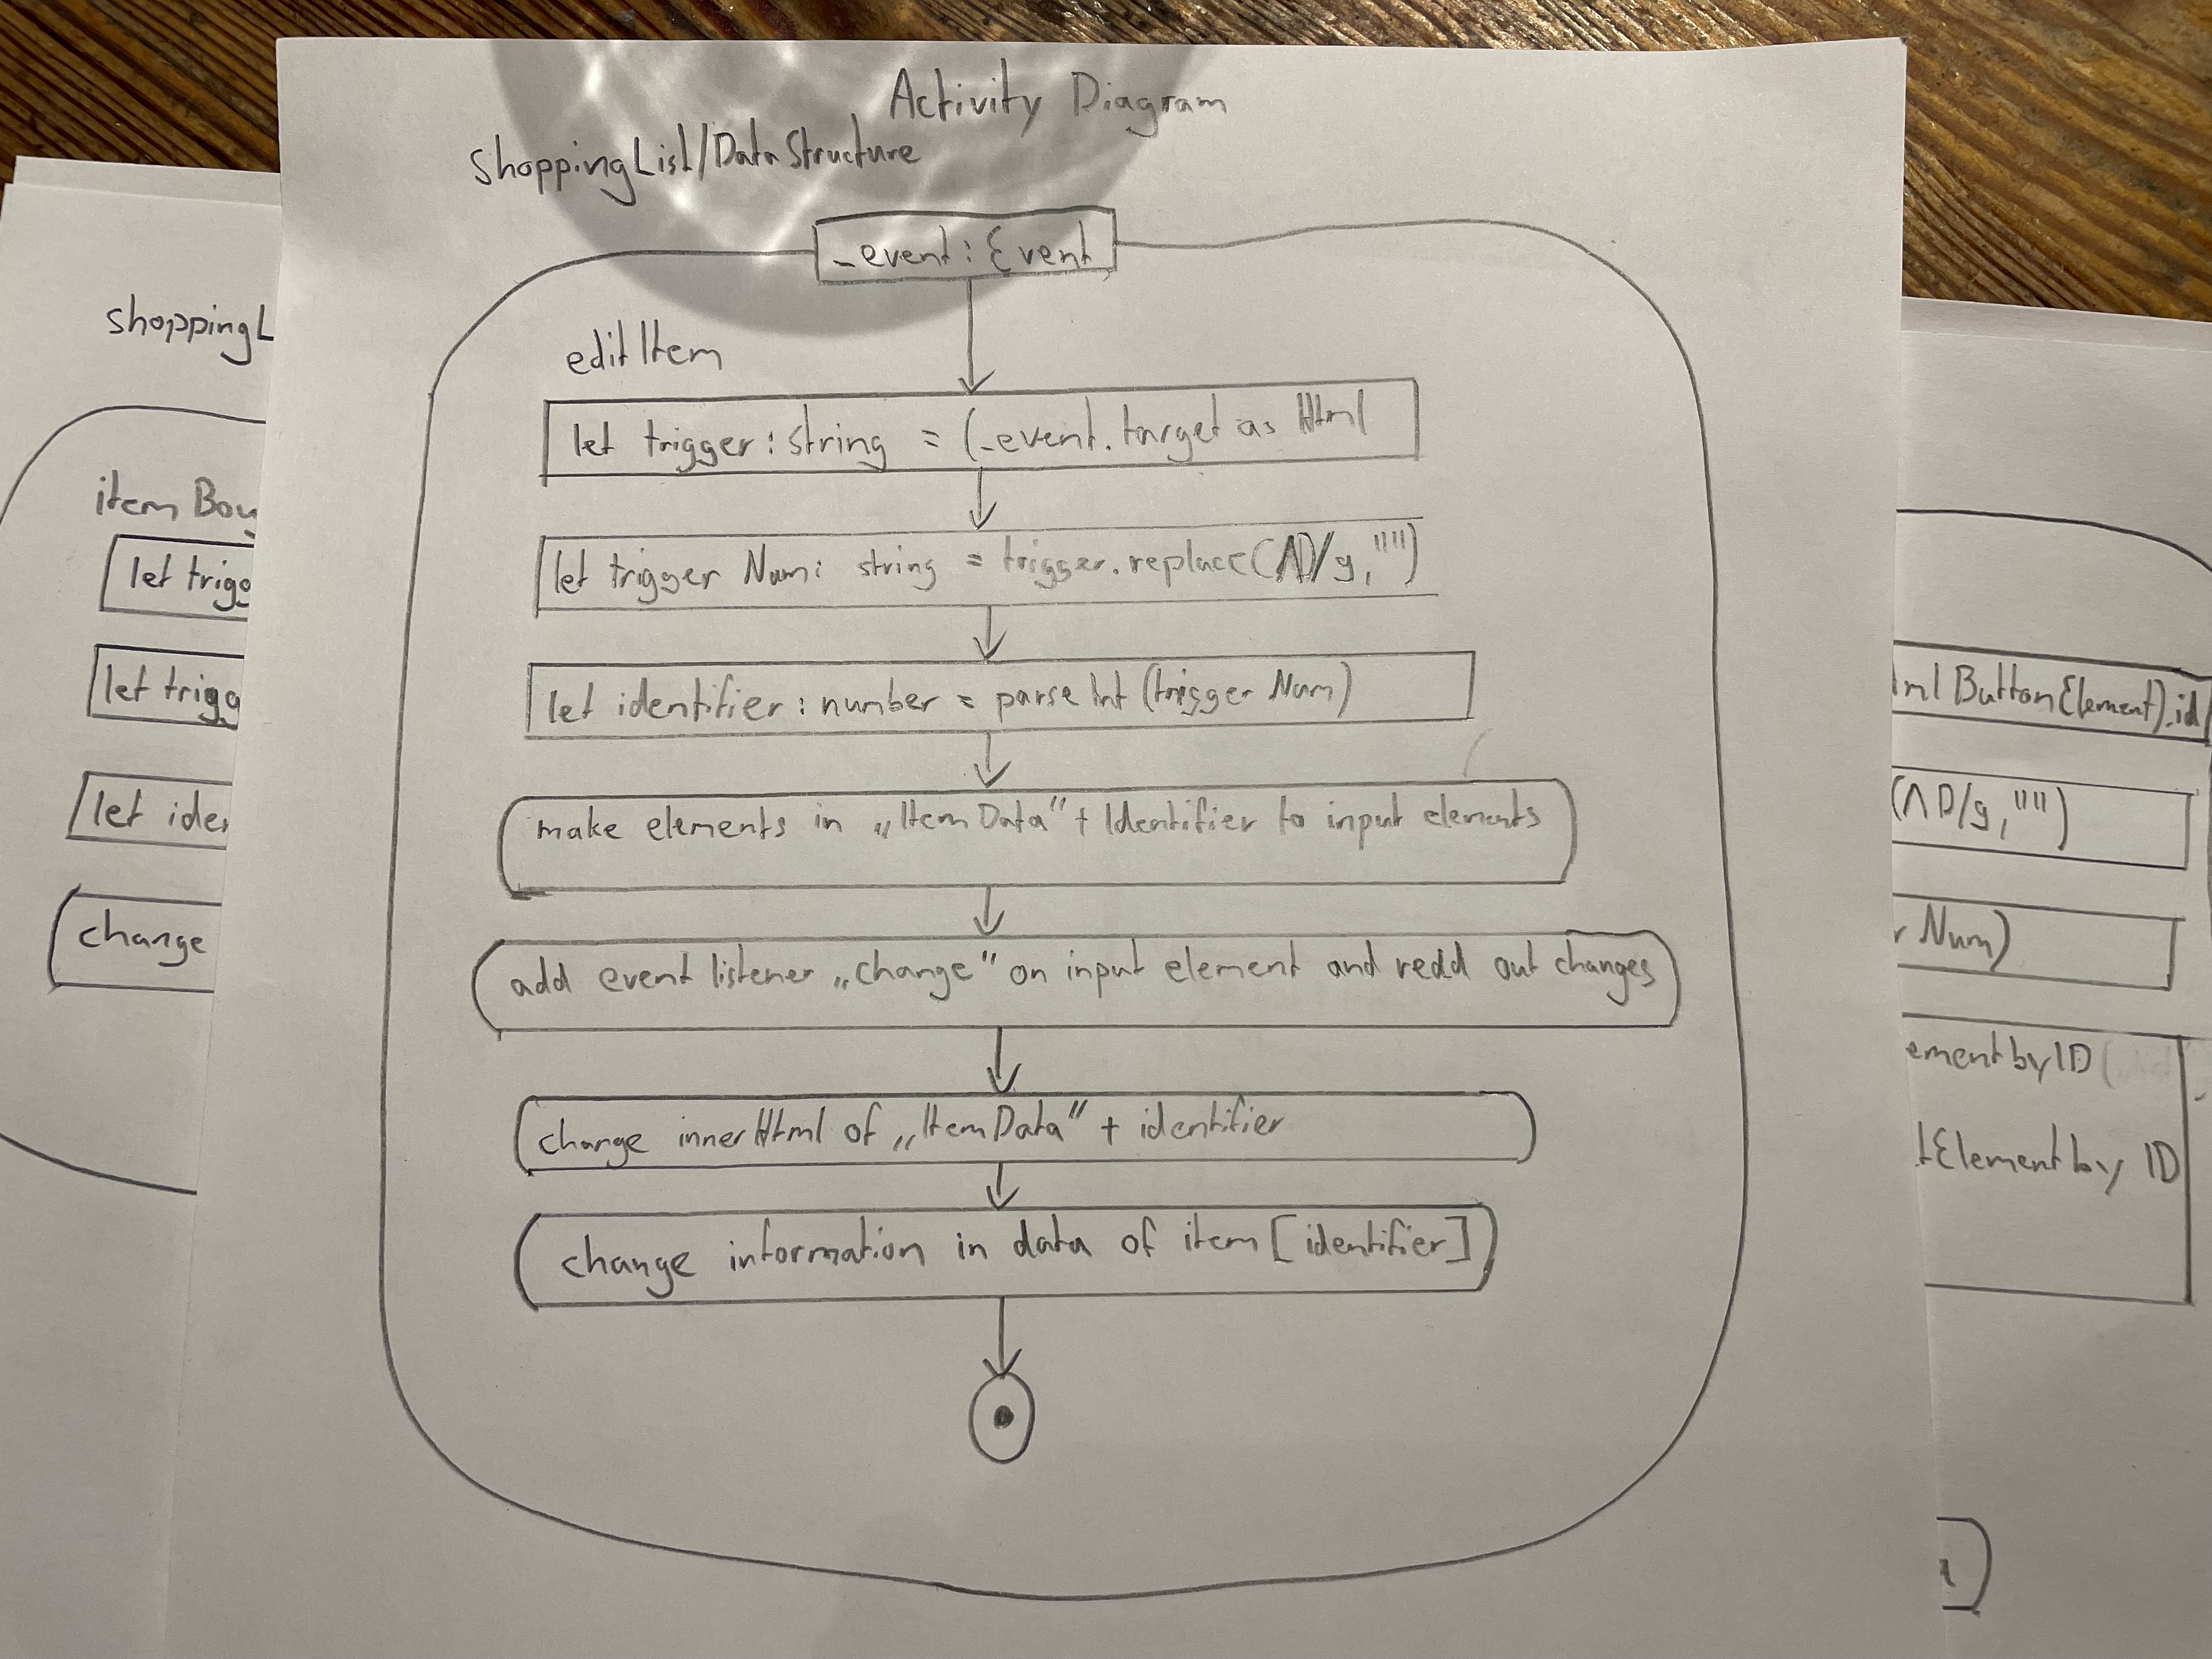 Activity Diagram
shoppingList/DataStructure
_event: Event
editItem
let trigger: string = (_event.target as Html
let trigger Num: string = trigger.replace(/\D/g, "")
let identifier: number = parseInt(trigger Num)
make elements in „ItemData" + Identifier to input elements
add event listener „change" on input element and redd out changes
change innerHtml of „ItemData" + identifier
change information in data of item [identifier]
shoppingL
item Bou
let trigg
let trigg
let iden
change
ml ButtonElement).id
(\D/g, "")
r Num)
ementbyID(
tElementby ID